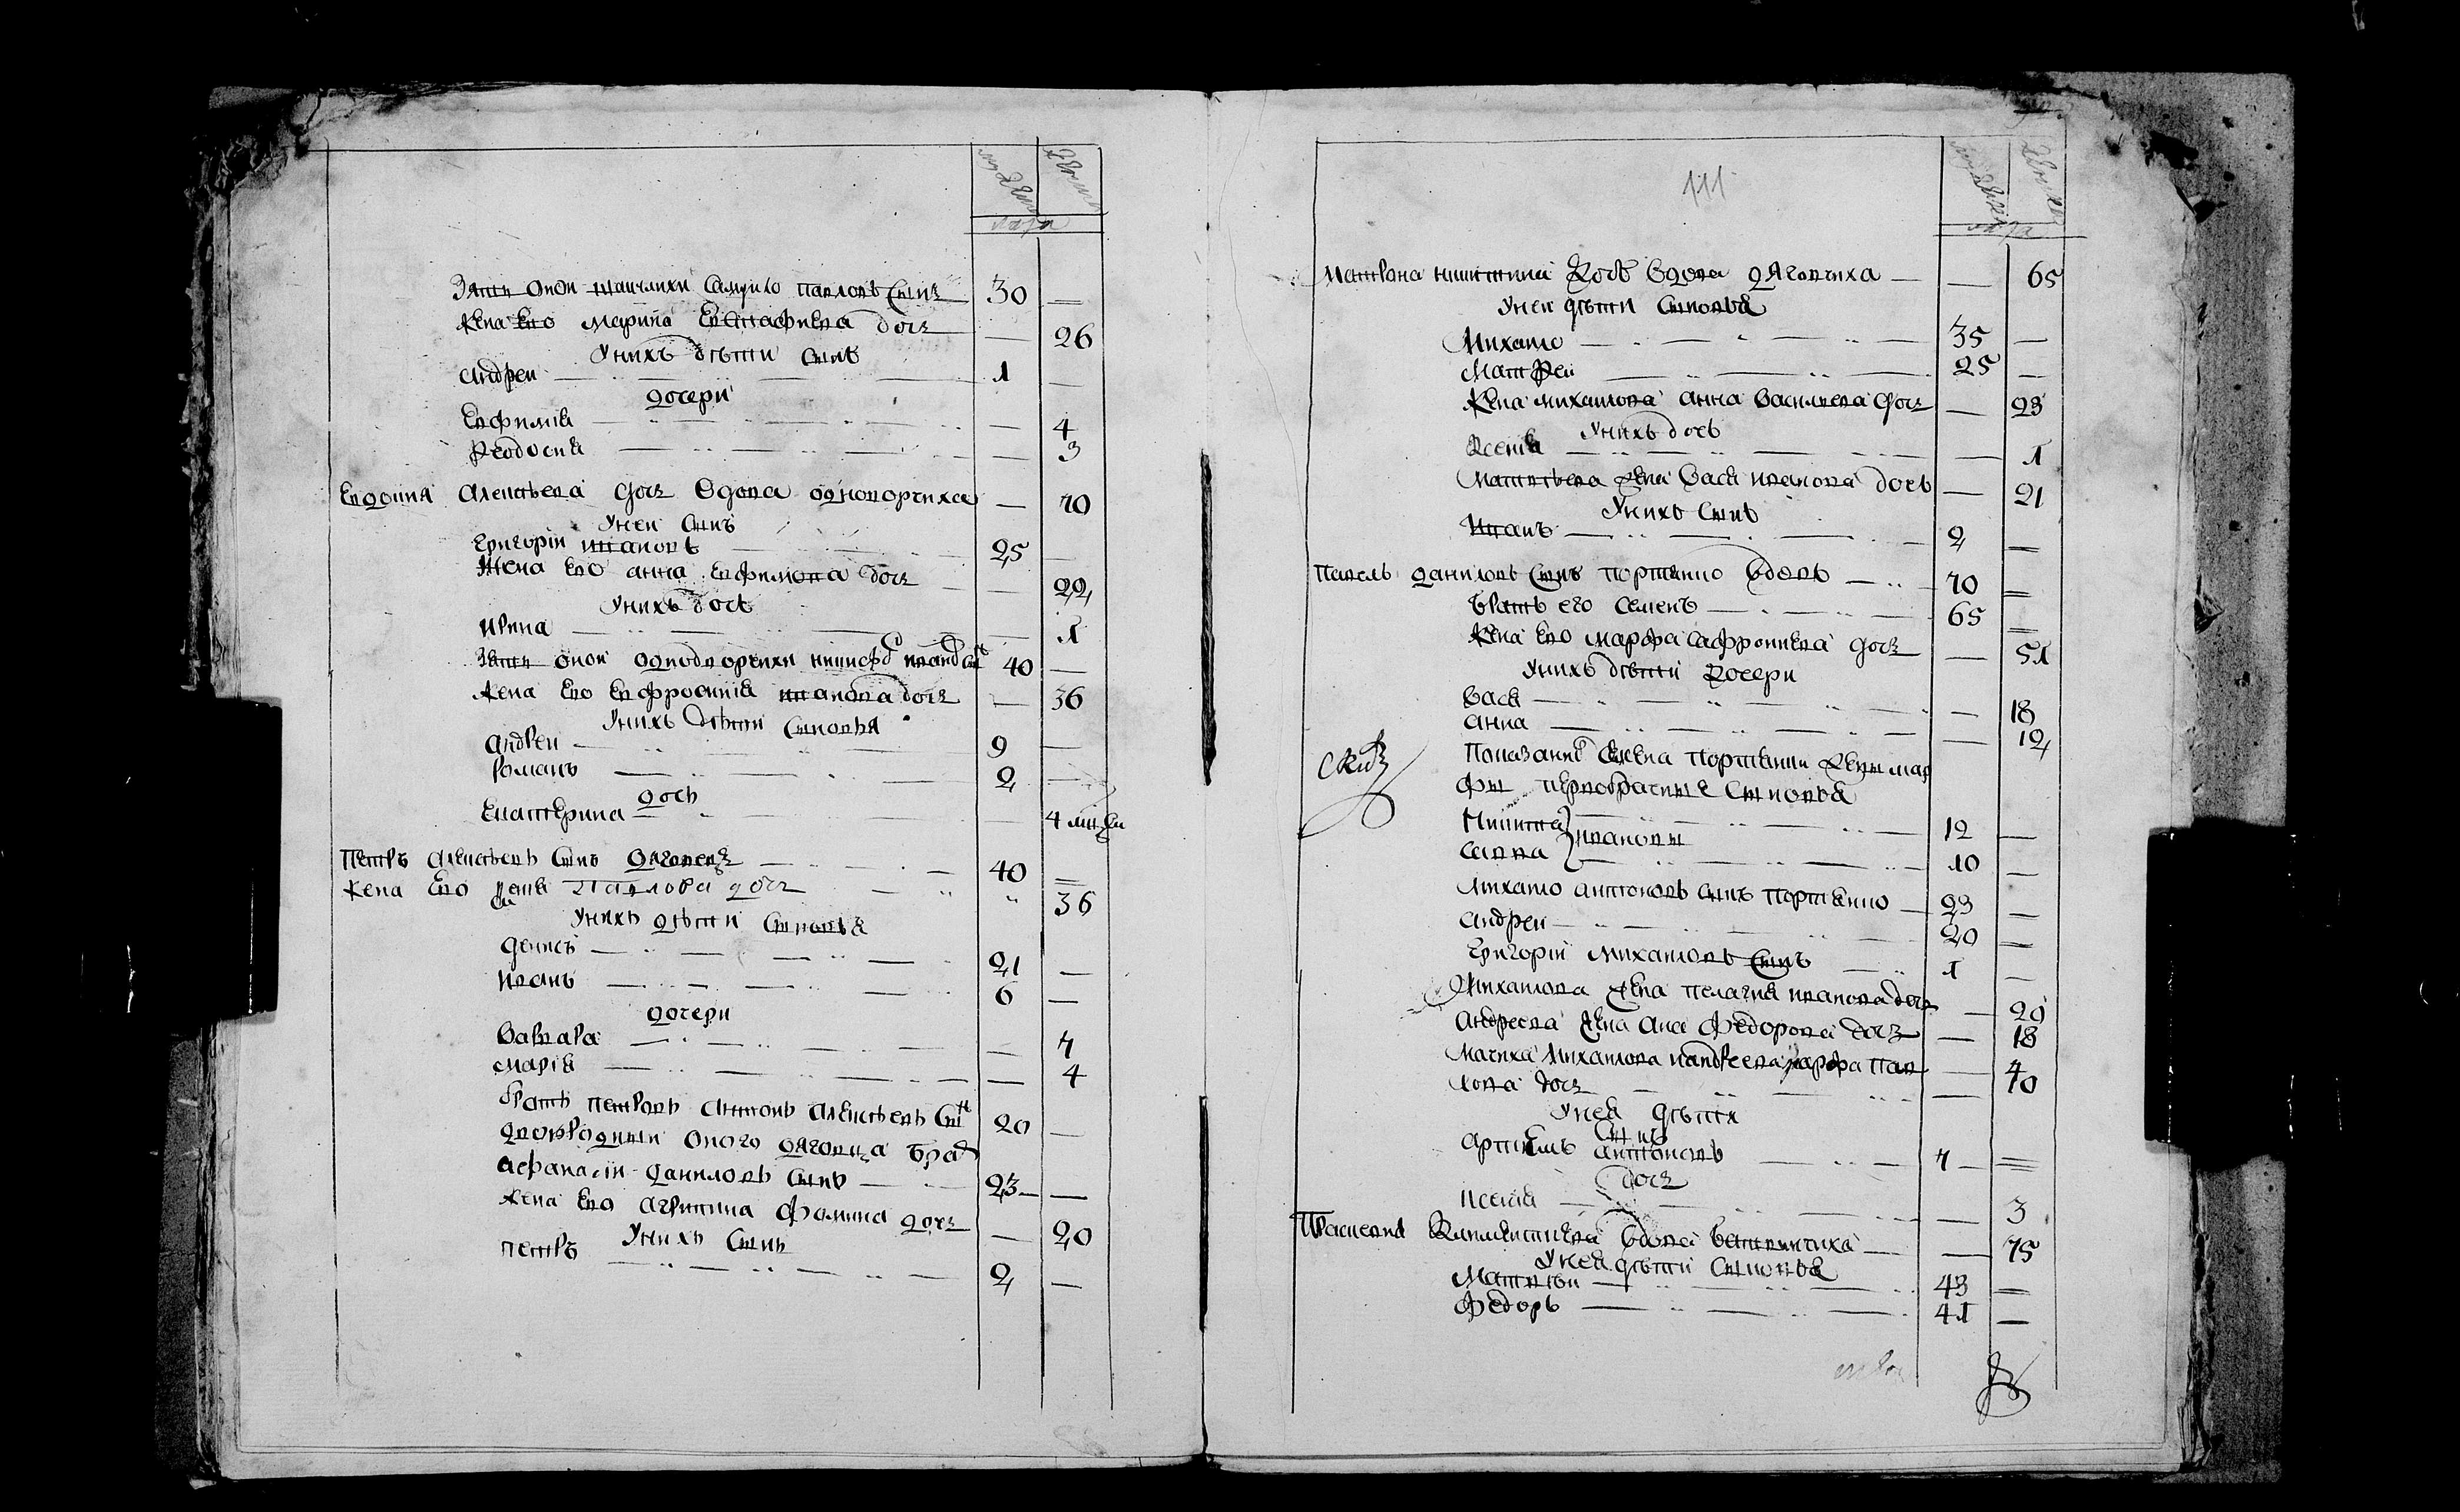 мужеска
женска
лѣта
Зять оной ткачихи Самуило Павловъ сынъ 30 —
Жена ево Марина Евстафиева дочъ — 26
У нихъ дѣти сынъ
Андреи 1 —
дочери
Евфимия — 4
Феодосия — 3
Евдокия Алексѣева дочъ вдова однодворчиха — 70
У неи сынъ
Григорій Ивановъ 25 —
Жена ево Анна Евфимова дочъ — 22
У нихъ дочь
Ирина — 1
Зять оной однодворчихи Никифо Ивановъ сынъ 40 —
Жена ево Евфросиния Иванова дочъ — 36
У нихъ дѣти сыновья
Андреи 9 —
Романъ 2 —
дочь
Екатерина — 4
Петръ Алексѣевъ сынъ дяговецъ 40 —
Жена ево Павлова дочъ 36
У нихъ дѣти сыновья
Денисъ 21 —
Иванъ 6 —
дочери
Варвара — 7
Мария — 4
Братъ Петровъ Антонъ Алексѣевъ сынъ 20 —
Двоюродныи оного дяговца братъ
Афанасій Даниловъ сынъ 23 —
Жена ево Агрипина Фомина дочъ — 20
У нихъ сынъ
Петръ 2 —
111
мужеска
женска
лѣта
Матрона Никитина дочь вдова дяговчиха — 65
У неи дѣти сыновья
Михаило 35 —
Матфеи 25 —
Жена Михаилова Анна Василиева дочъ — 23
У нихъ дочь
Ксения — 1
Матвѣева жена Васа Иванова дочь — 21
У нихъ сынъ
Иванъ 2 —
Павелъ Даниловъ сынъ Портянко вдовъ 70 —
Братъ его Семенъ 65 —
Жена ево Марфа Сафрониева дочъ — 51
У нихъ дѣти дочери
Васа — 18
Анна — 12
Показанной Семена Портянки жены Мар
фы первобрачные сыновья
Никита } Ивановы 12 —
Савва 10 —
Михаило Антоновъ сынъ Портянко 23 —
Андреи 20 —
Григорій Михаиловъ сынъ 1 —
Михаилова жена Пелагия Иванова дочъ — 20
Андреева жена Ана Федорова дочъ — 18
Мачиха Михаилова и Андреева Марфа Пав — 40
лова дочъ
У нея дѣти
сынъ
Артемъ Антоновъ 7 —
дочъ
Ксения — 3
Прасковия Климентиева вдова — 75
У нея дѣти сыновья
Матвѣи 43 —
Федоръ 41 —